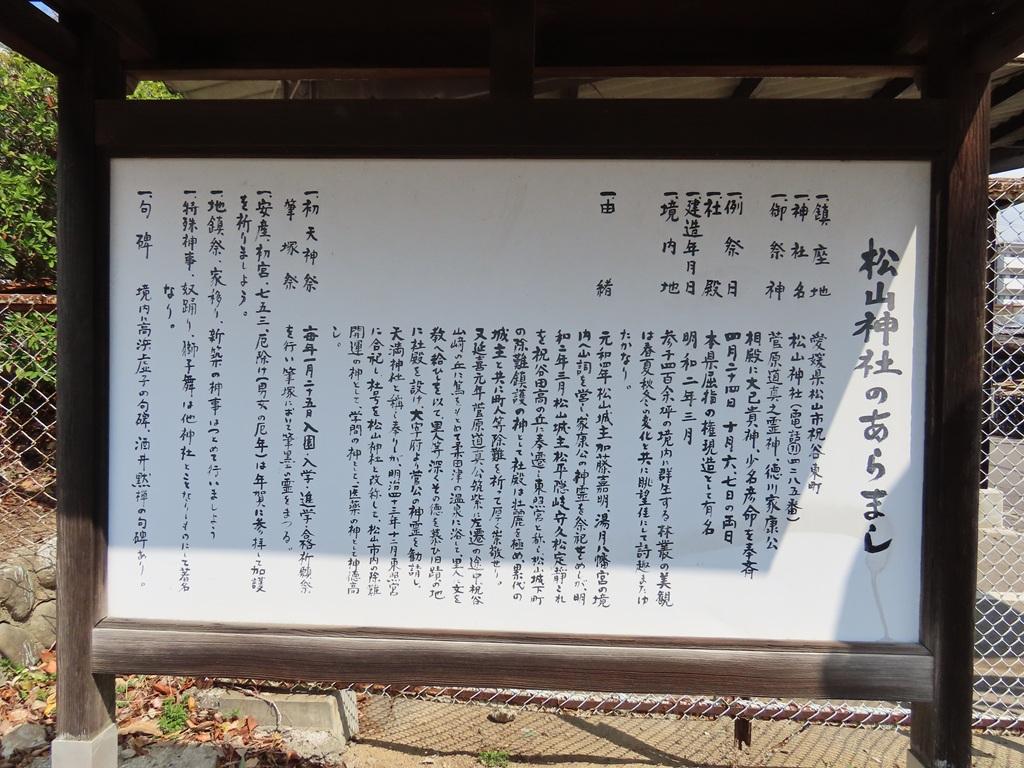 松山神社のあらまし
一、鎮座地 愛媛県松山市祝谷東町
一、神社名 松山神社(電話 四三八五番)
一、御祭神 菅原道真之霊神、徳川家康公
相殿に大己貴神・少名彦命を奉斎
一、例祭日 四月二十四日 十月六、七日の両日
一、社殿 本県屈指の権現造として有名
一、建造年月日 明和二年三月
一、境内地 参千四百余坪の境内に群生する林叢の美観
は春夏秋冬の変化と共に眺望佳にして詩趣またゆ
たかなり。
一、由緒 元和四年松山城主加藤嘉明、湯月八幡宮の境
内山詞を営み家康公の神霊を祭祀せしめしが明
和二年三月松山城主松平隠岐守久松定静これ
を祝谷田高の丘に奉遷し東照宮と称し松山城下町
の除難鎮護の神として社殿は壮麗を極め累代の
城主と共に町人等除難を祈って厚く崇敬せり。
又延喜元年菅原道真公筑紫に左遷の途中祝谷
山崎の丘に篤をもとめて柔田津の温泉に浴し里人に文を
教へ給ひしを以て里人等深くその徳を慕ひ旧蹟の地
に社殿を設け、太宰府より菅公の神霊を勧請し
天満神社と称し奉りしが、明治四十三年十一月東照宮
に合祀し社号を松山神社と改称して松山市内の除難
開運の神として、学問の神として、医薬の神として神徳高
し。
一、初天神祭
筆塚祭 毎年一月二十五日入園、入学、進学、合格祈願祭
を行い筆塚において筆墨の霊をまつる。
一、安産、初宮、七五三、厄除け(男女の厄年)は年賀に参拝して加護
を祈りましょう。
一、地鎮祭、家移り、新築の神事はつとめて行いましょう
一、特殊神事、奴踊り、獅子舞は他神社とことなりしものにして著名
なり。
一、句碑 境内に高浜虚子の句碑、酒井黙禅の句碑あり。